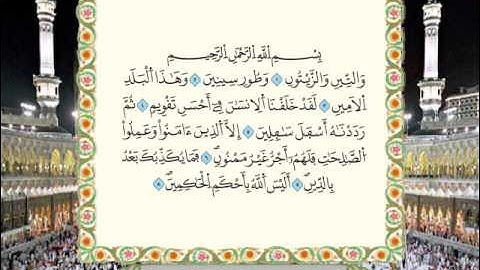 بِسْمِ اللَّهِ الرَّحْمَٰنِ الرَّحِيمِ
وَالتِّينِ وَالزَّيْتُونِ ١ وَطُورِ سِينِينَ ٢ وَهَٰذَا الْبَلَدِ
الْأَمِينِ ٣ لَقَدْ خَلَقْنَا الْإِنسَٰنَ فِي أَحْسَنِ تَقْوِيمٍ ٤ ثُمَّ
رَدَدْنَٰهُ أَسْفَلَ سَٰفِلِينَ ٥ إِلَّا الَّذِينَ ءَامَنُوا وَعَمِلُوا
الصَّٰلِحَٰتِ فَلَهُمْ أَجْرٌ غَيْرُ مَمْنُونٍ ٦ فَمَا يُكَذِّبُكَ بَعْدُ
بِالدِّينِ ٧ أَلَيْسَ اللَّهُ بِأَحْكَمِ الْحَٰكِمِينَ ٨